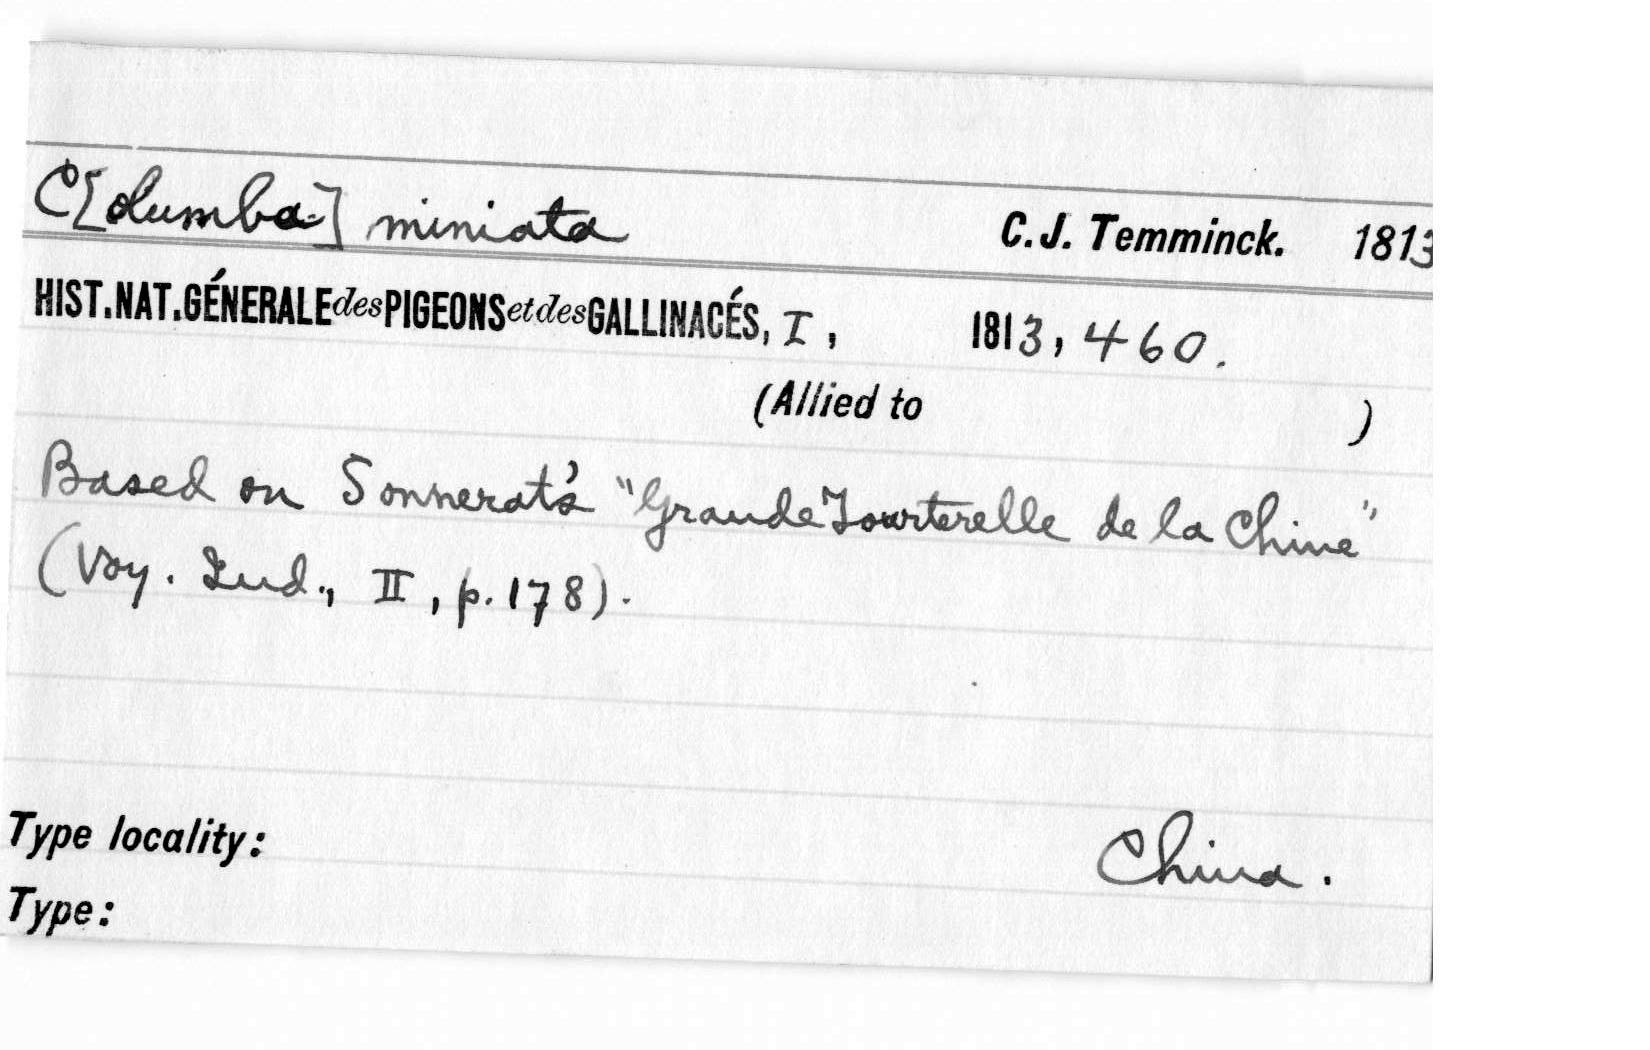 C[olumba] miniata C.J. Temminck. 1813
HIST.NAT.GÉNERALE des PIGEONS et des GALLINACÉS, I, 1813, 460.
(Allied to )
Based on Sonnerat's "Grande Tourterelle de la Chine"
(Voy. Ind., II, p. 178).
Type locality: China.
Type: